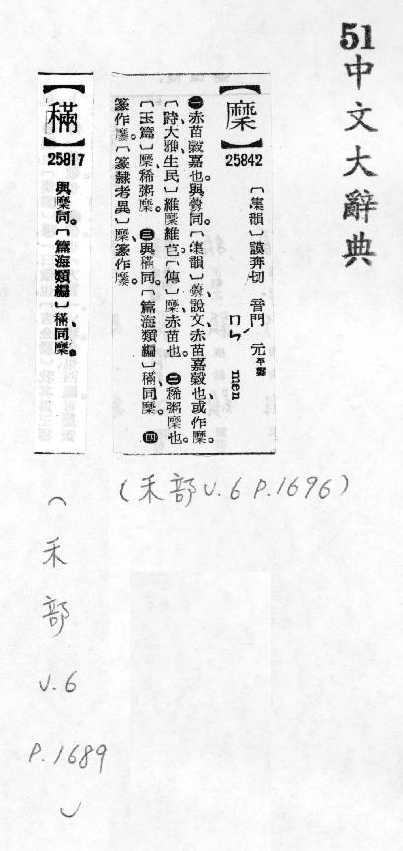 51中文大辭典
【穈】
25842
〔集韻〕謨奔切 音門 元平聲
ㄇㄣˊ men
㊀赤苗穀嘉也、與虋同。〔集韻〕虋、說文、赤苗嘉穀也、或作穈。
〔詩大雅、生民〕維穈維芑。〔傳〕穈、赤苗也。㊁稀粥穈也。
〔玉篇〕穈、稀粥穈。㊂與同。〔篇海類編〕、同穈。㊃
篆作穈。〔篆隸考異〕穈、篆作穈。
(禾部 V.6 P.1696)
【】
25817
與穈同。〔篇海類編〕、同穈。
(禾部 V.6 P.1689)